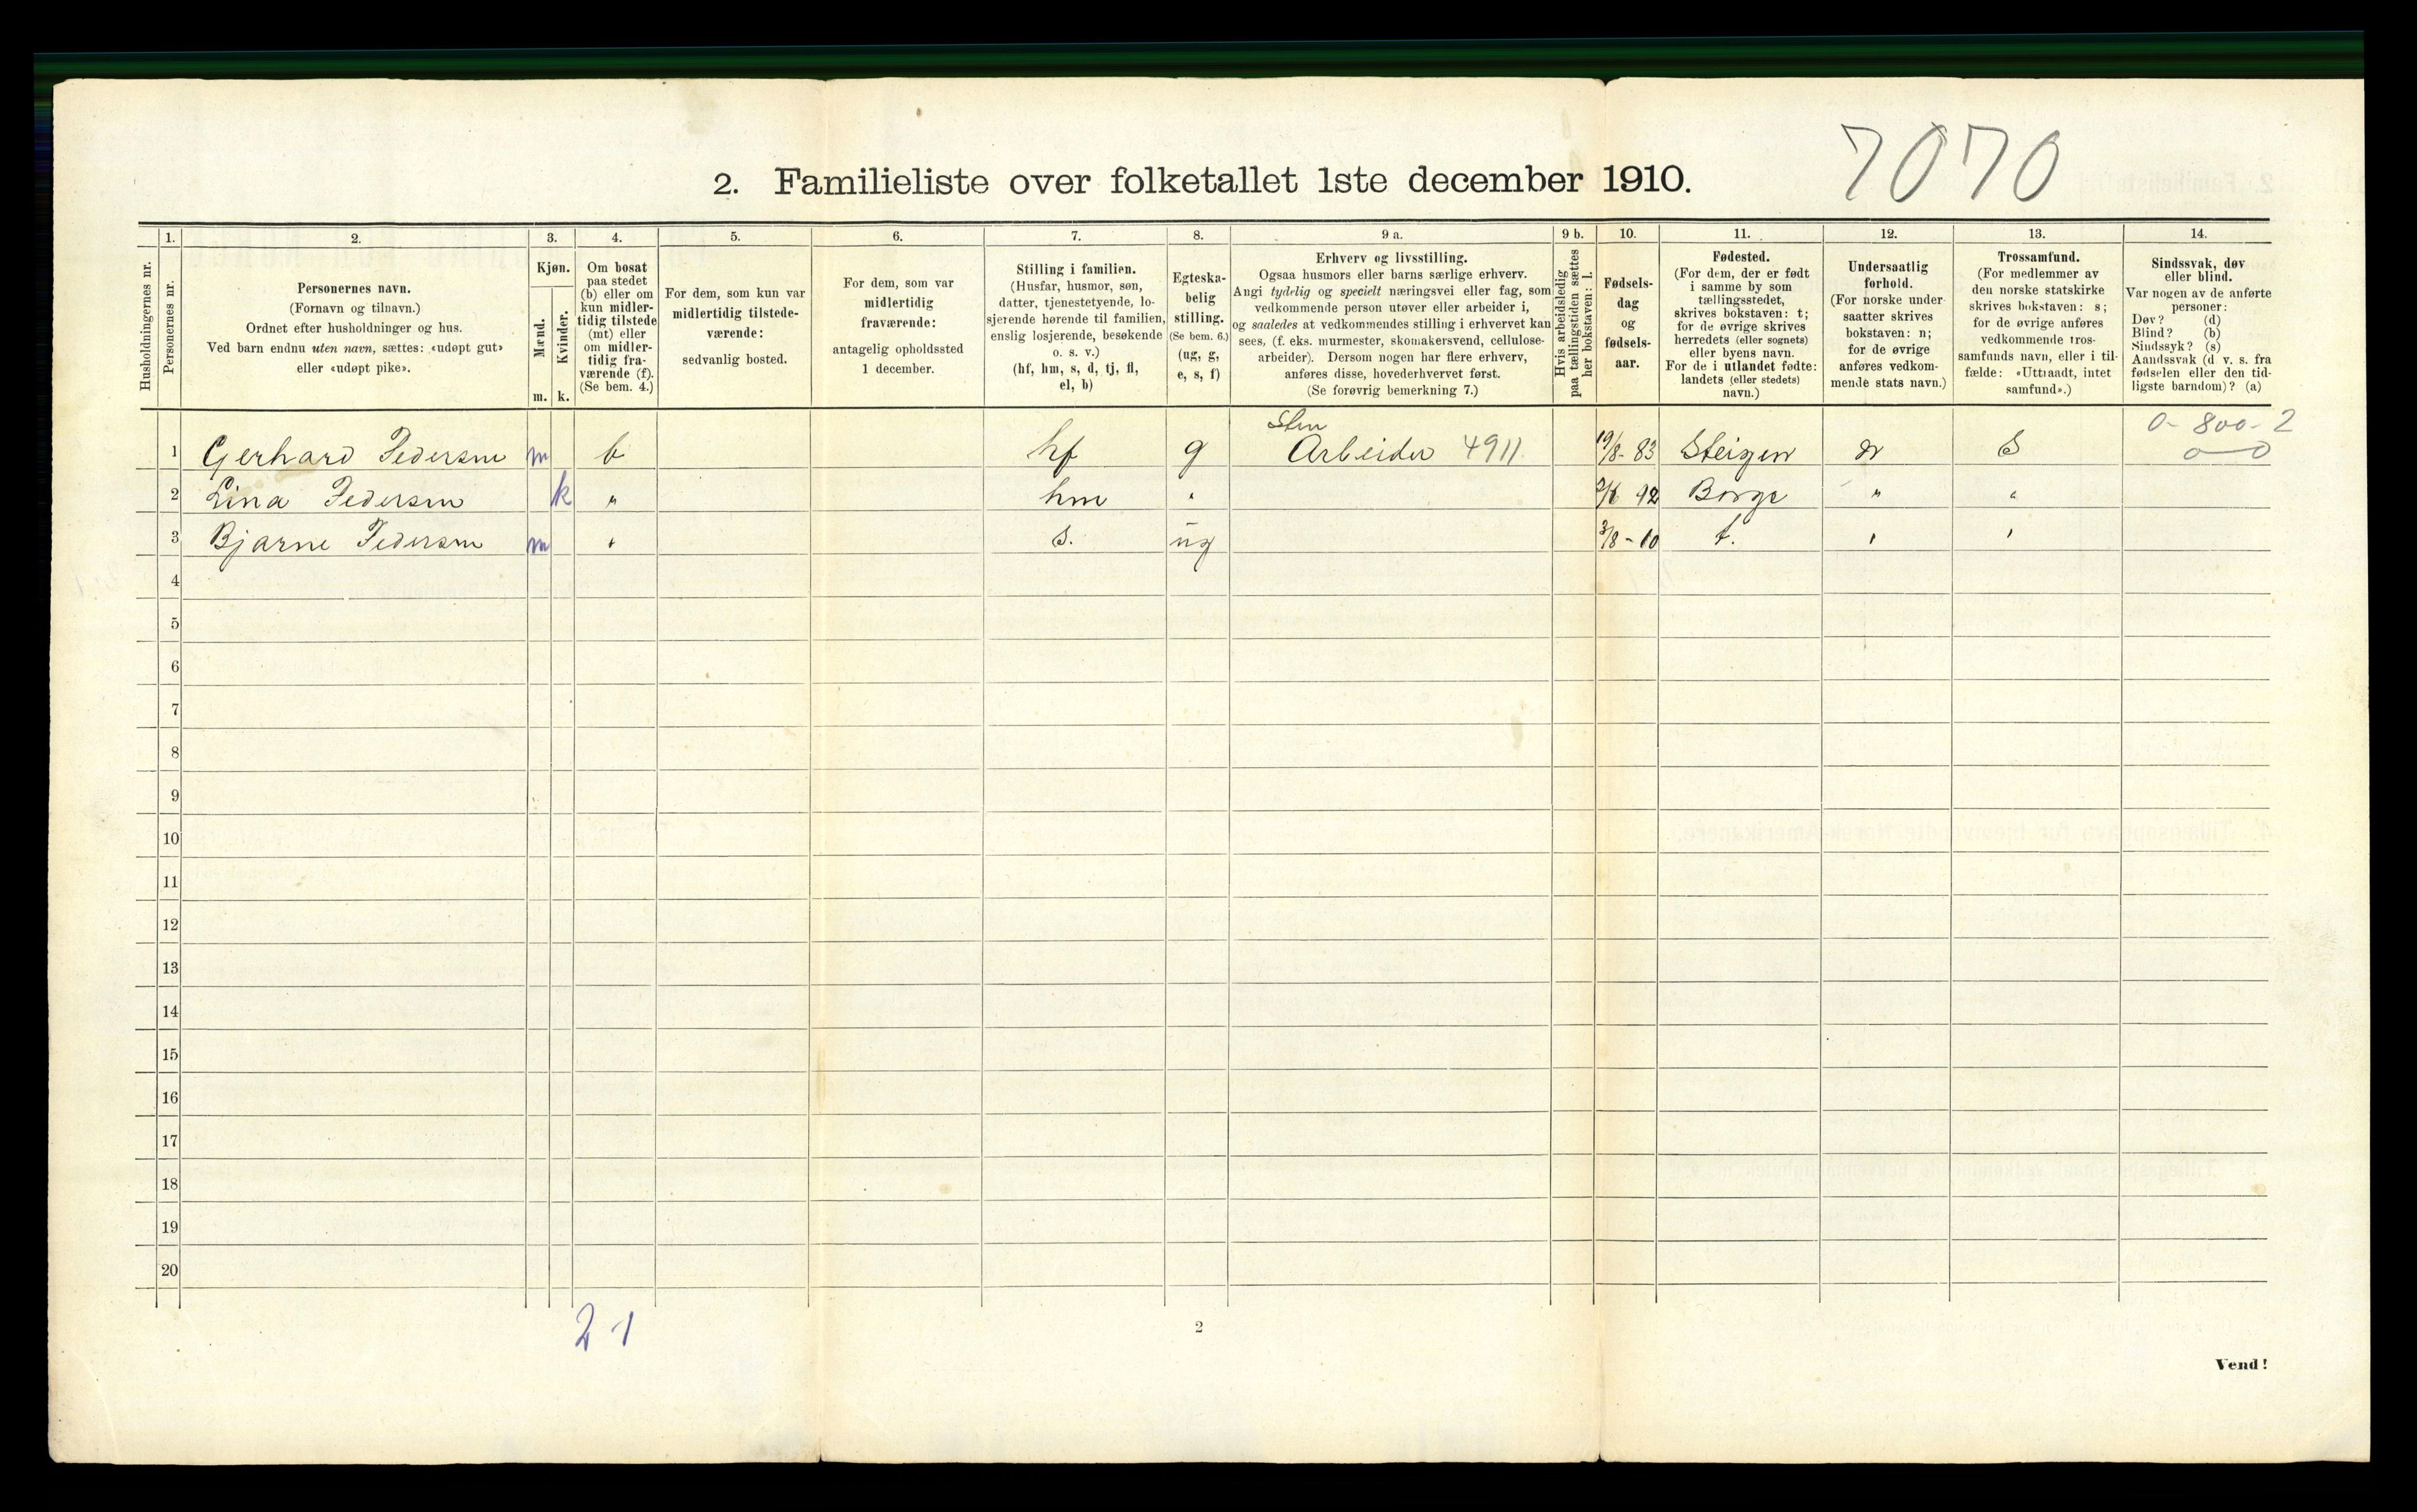 7070
2. Familieliste over folketallet 1ste december 1910.
1. 2. 3. 4. 5. 6. 7. 8. 9 a. 9 b. 10. 11. 12. 13. 14.
Husholdningernes nr.
Personernes nr.
Personernes navn.
(Fornavn og tilnavn.)
Ordnet efter husholdninger og hus.
Ved barn endnu uten navn, sættes: «udøpt gut»
eller «udøpt pike».
Kjøn.
Mænd.
Kvinder.
m. k.
Om bosat
paa stedet
(b) eller om
kun midler-
tidig tilstede
(mt) eller
om midler-
tidig fra-
værende (f).
(Se bem. 4.)
For dem, som kun var
midlertidig tilstede-
værende:
sedvanlig bosted.
For dem, som var
midlertidig
fraværende:
antagelig opholdssted
1 december.
Stilling i familien.
(Husfar, husmor, søn,
datter, tjenestetyende, lo-
sjerende hørende til familien,
enslig losjerende, besøkende
o. s. v.)
(hf, hm, s, d, tj, fl,
el, b)
Egteska-
belig
stilling.
(Se bem. 6.)
(ug, g,
e, s, f)
Erhverv og livsstilling.
Ogsaa husmors eller barns særlige erhverv.
Angi tydelig og specielt næringsvei eller fag, som
vedkommende person utøver eller arbeider i,
og saaledes at vedkommendes stilling i erhvervet kan
sees, (f. eks. murmester, skomakersvend, cellulose-
arbeider). Dersom nogen har flere erhverv,
anføres disse, hovederhvervet først.
(Se forøvrig bemerkning 7.)
Hvis arbeidsledig
paa tællingstiden sættes
her bokstaven: l.
Fødsels-
dag
og
fødsels-
aar.
Fødested.
(For dem, der er født
i samme by som
tællingsstedet,
skrives bokstaven: t;
for de øvrige skrives
herredets (eller sognets)
eller byens navn.
For de i utlandet fødte:
landets (eller stedets)
navn.)
Undersaatlig
forhold.
(For norske under-
saatter skrives
bokstaven: n;
for de øvrige
anføres vedkom-
mende stats navn.)
Trossamfund.
(For medlemmer av
den norske statskirke
skrives bokstaven: s;
for de øvrige anføres
vedkommende tros-
samfunds navn, eller i til-
fælde: «Uttraadt, intet
samfund».)
Sindssvak, døv
eller blind.
Var nogen av de anførte
personer:
Døv? (d)
Blind? (b)
Sindssyk? (s)
Aandssvak (d v. s. fra
fødselen eller den tid-
ligste barndom)? (a)
Sten 0-800-2
1 Gerhard Pedersen m b hf g Arbeider 4911 19/8-83 Steigen n S 0-0
2 Lina Pedersen k " hm " 92 Borge " "
3 Bjarne Pedersen m " s. ug 3/8-10 t. " "
4
5
6
7
8
9
10
11
12
13
14
15
16
17
18
19
20
2 1
2
Vend!